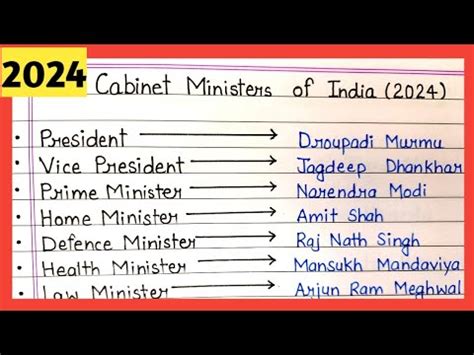 2024
Cabinet Ministers of India (2024)
• President → Droupadi Murmu
• Vice President → Jagdeep Dhankhar
• Prime Minister → Narendra Modi
• Home Minister → Amit Shah
• Defence Minister → Raj Nath Singh
• Health Minister → Mansukh Mandaviya
• Law Minister → Arjun Ram Meghwal